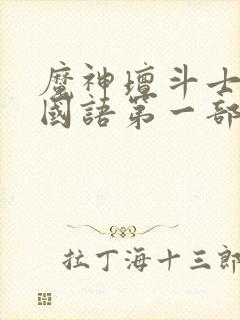 魔神壇斗士
國語第一部
拉丁海十三郎